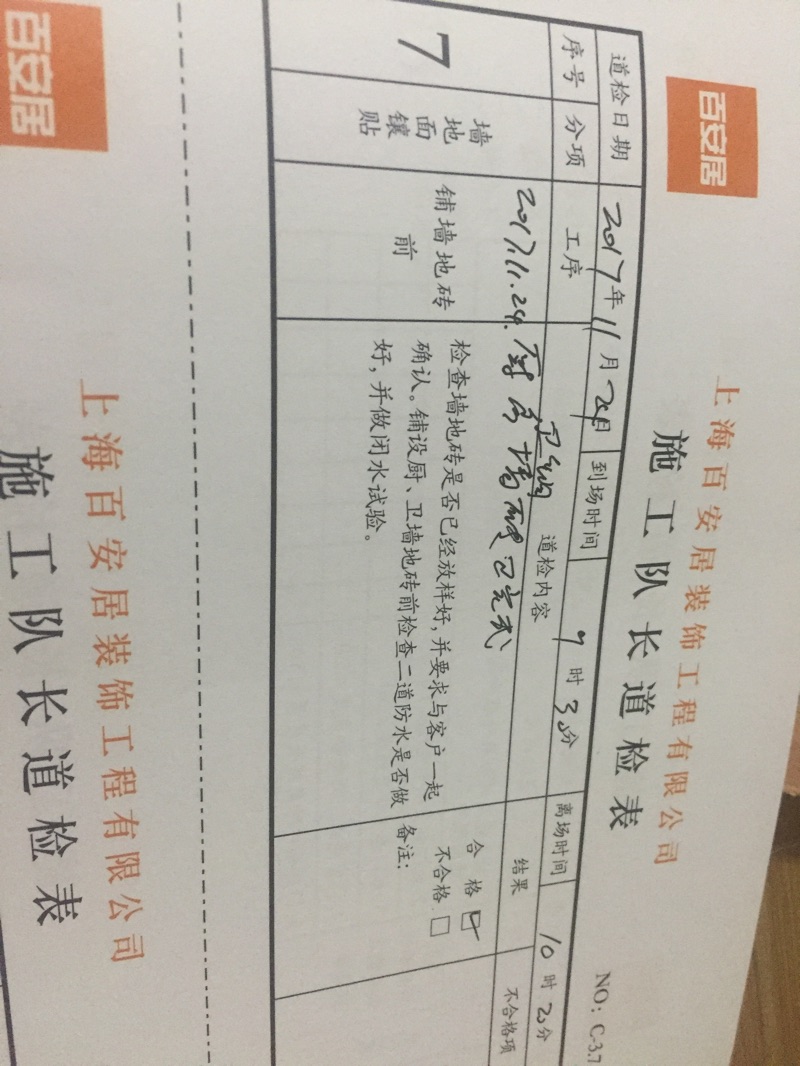 百安居
上海百安居装饰工程有限公司
施工队长道检表
NO：C-3.7
道检日期 2017年11月24日 到场时间 9时30分 离场时间 10时20分
序号 分项 工序 道检内容 结果 不合格项
2017.11.24.
墙砖已完成
7
墙地面镶贴
铺墙地砖前
检查墙地砖是否已经放样好，并要求与客户一起
确认。铺设厨、卫墙地砖前检查二道防水是否做
好，并做闭水试验。
合格
不合格
备注：
百安居
上海百安居装饰工程有限公司
施工队长道检表